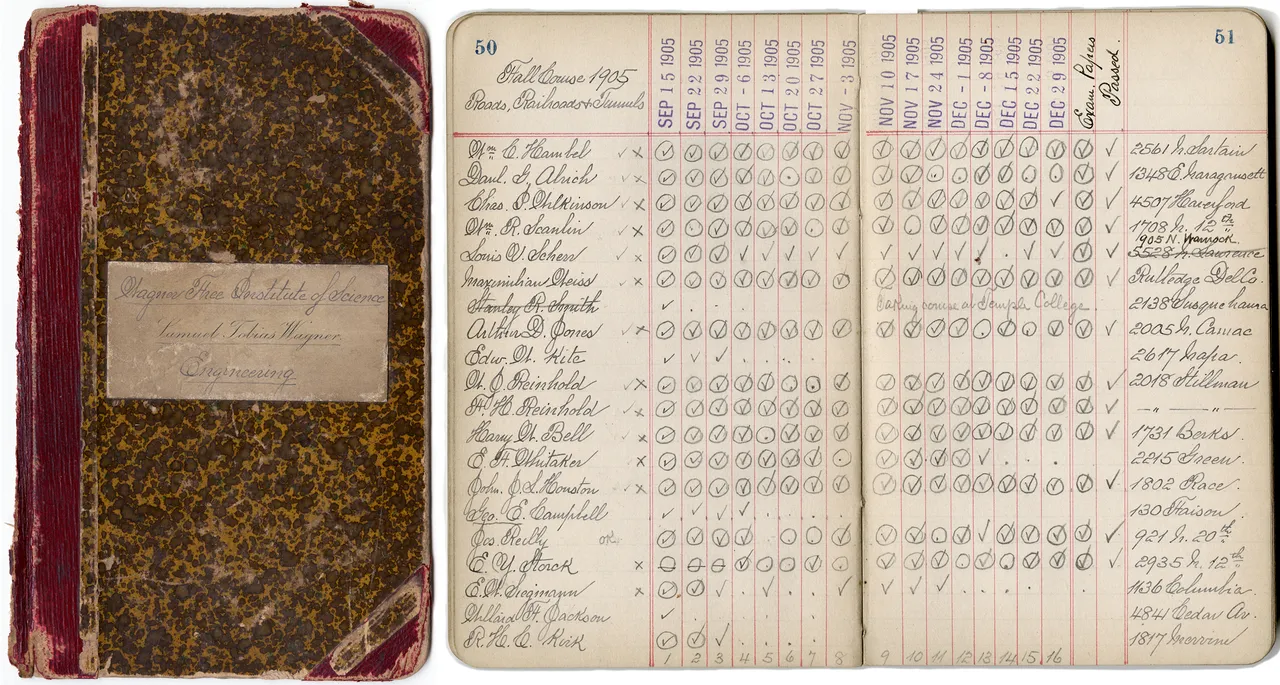 Wagner Free Institute of Science
Samuel Tobias Wagner.
Engineering
50
51
Fall Course 1905
Roads, Railroads & Tunnels
SEP 15 1905 SEP 22 1905 SEP 29 1905 OCT - 6 1905 OCT 13 1905 OCT 20 1905 OCT 27 1905 NOV - 3 1905 NOV 10 1905 NOV 17 1905 NOV 24 1905 DEC - 1 1905 DEC - 8 1905 DEC 15 1905 DEC 22 1905 DEC 29 1905 Exam. Papers Passed.
Wm. C. Hambel ✓ × 2561 N. Sartain
Danl. G. Alrich ✓ × 1348 E. Naragansett
Chas. P. Wilkinson ✓ × 4507 Haverford
Wm. R. Scanlin ✓ × 1708 N. 12th
1905 N. Warnock.
Louis V. Scherr ✓ × 5528 N. Lawrence
Maximilian Weiss ✓ × Rutledge Del Co.
Stanley R. Smith Taking course at Temple College. 2138 Susquehanna
Arthur D. Jones ✓ × 2005 N. Camac
Edw. W. Kite 2617 Napa.
W. J. Reinhold ✓ × 2018 Stillman
F. H. Reinhold ✓ × — " — " —
Harry W. Bell ✓ × 1731 Berks.
E. F. Whitaker × 2215 Green.
John. J. S. Houston ✓ × 1802 Race.
Geo. E. Campbell 130 Faison.
Jos. Reilly OK. 921 N. 20th
E. Y. Storck × 2935 N. 12th
E. W. Siegmann × 1136 Columbia.
Willard F. Jackson 4844 Cedar Av.
R. H. C. Kirk 1817 Mervine
1 2 3 4 5 6 7 8 9 10 11 12 13 14 15 16